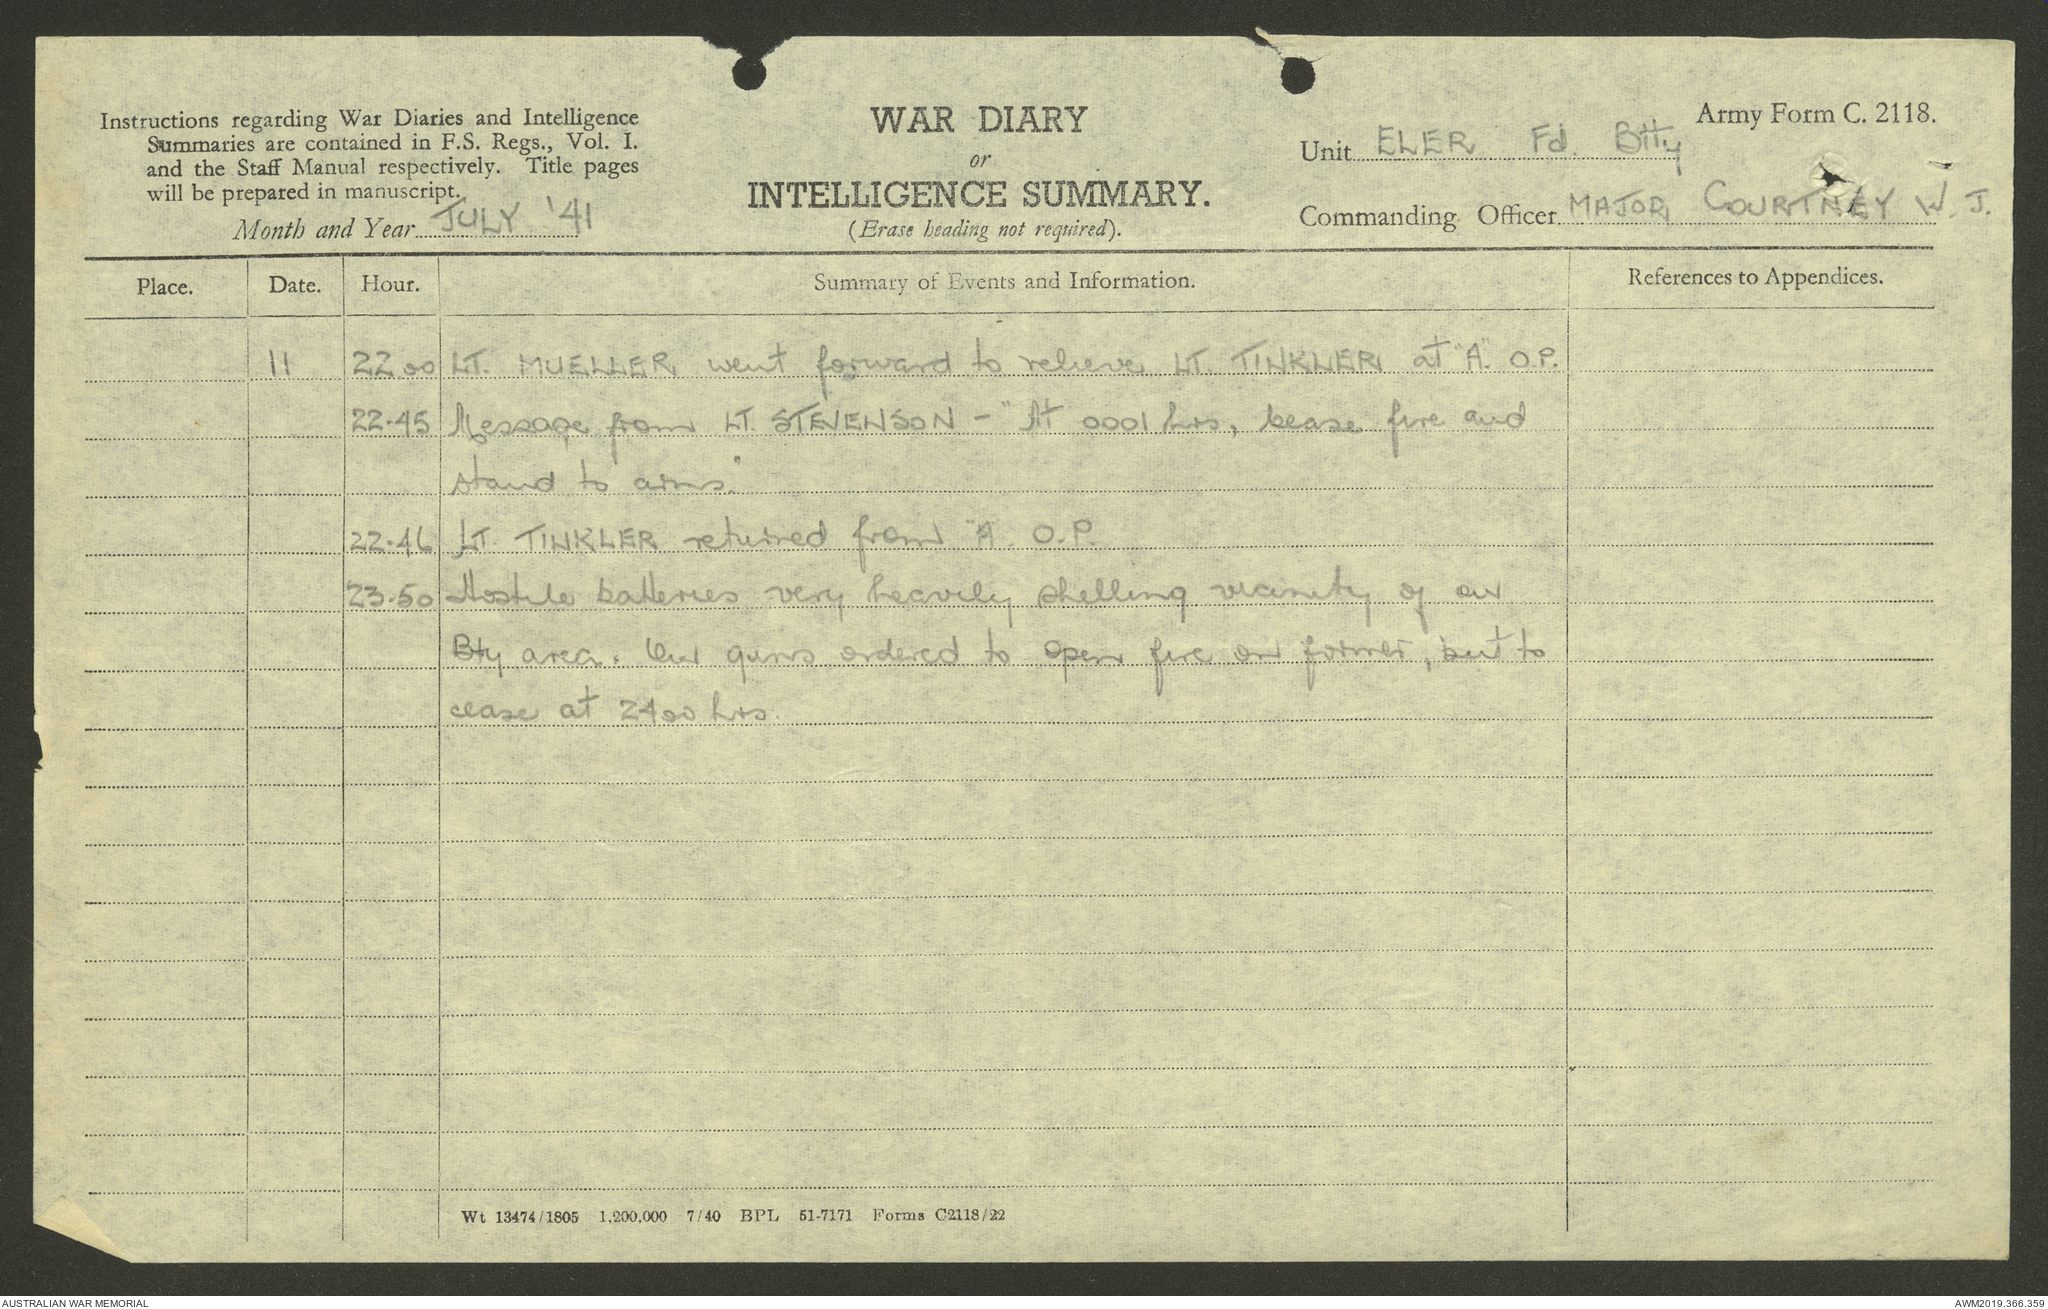 Instructions regarding War Diaries and Intelligence
Summaries are contained in F.S. Regs., Vol. I.
and the Staff Manual respectively. Title pages
will be prepared in manuscript.
Month and Year JULY '41
WAR DIARY
or
INTELLIGENCE SUMMARY.
(Erase heading not required).
Army Form C. 2118.
Unit ELER Fd. Btty
Commanding Officer MAJOR COURTNEY W. J.
Place. Date. Hour. Summary of Events and Information. References to Appendices.
11 22.00 LT. MUELLER went forward to relieve LT. TINKLER at "A". O.P.
22.45 Message from LT. STEVENSON - "At 0001 hrs, cease fire and
stand to arms."
22.46 LT. TINKLER returned from "A". O.P.
23.50 Hostile batteries very heavily shelling vicinity of our
Bty area. Our guns ordered to open fire on former, but to
cease at 2400 hrs.
Wt 13474/1805 1,200,000 7/40 BPL 51-7171 Forms C2118/22
AUSTRALIAN WAR MEMORIAL
AWM2019.366.359